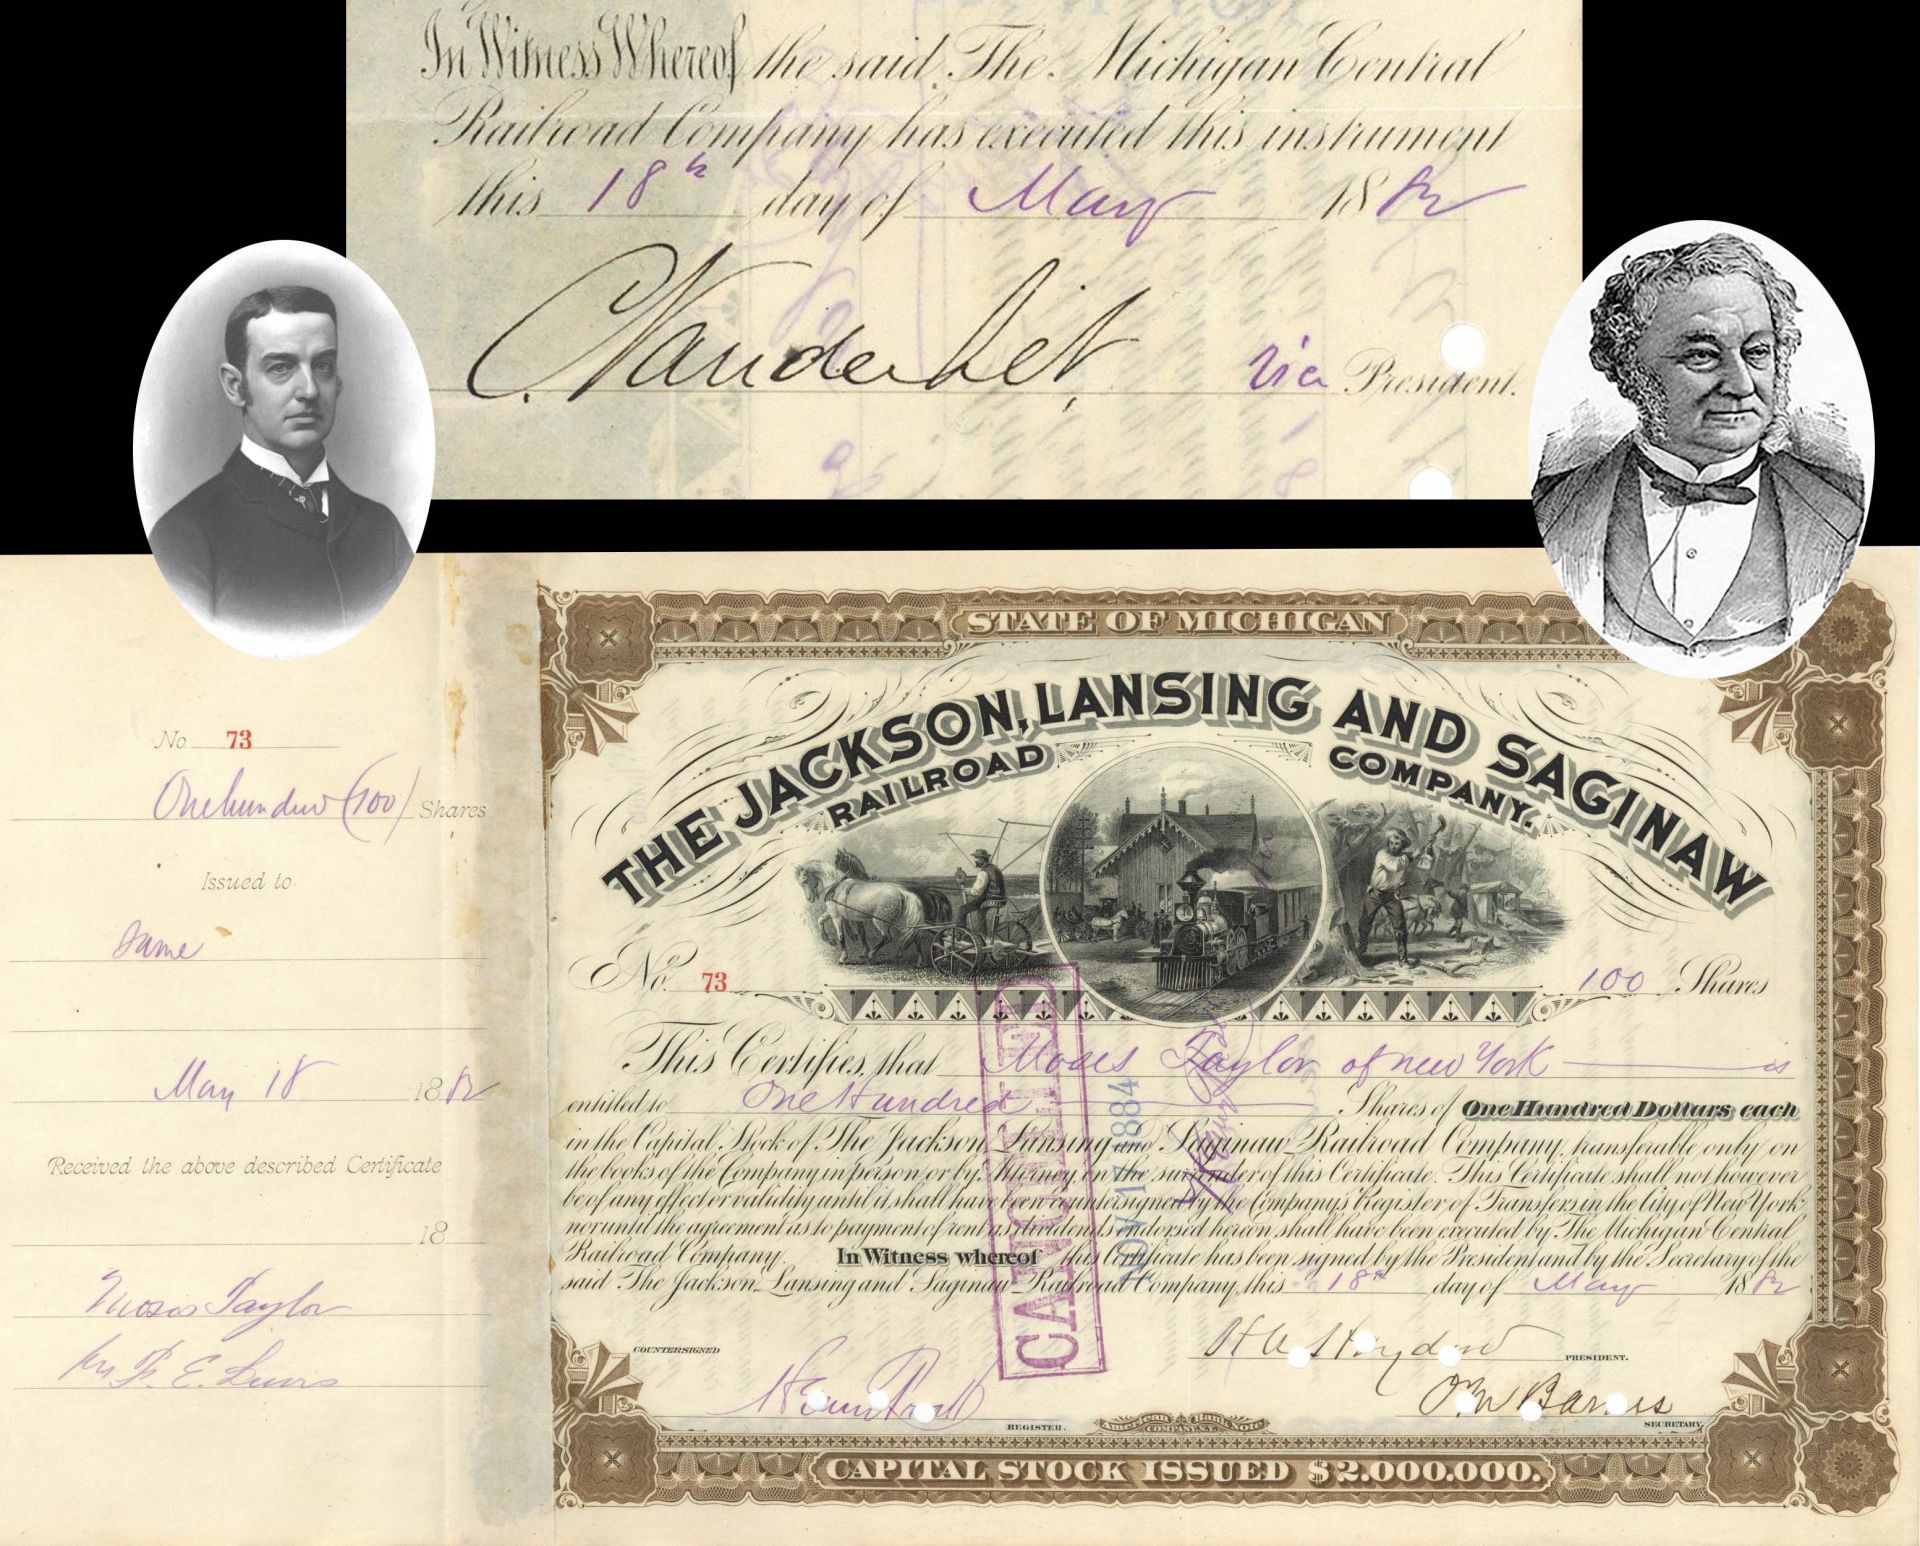 In Witness Whereof the said The Michigan Central
Railroad Company has executed this instrument
this 18th day of May 1882
C. Vanderbilt, Vice President.
No. 73
One hundred (100) Shares
Issued to
Same
May 18 1882
Received the above described Certificate
18
Moses Taylor
STATE OF MICHIGAN
THE JACKSON, LANSING AND SAGINAW
RAILROAD COMPANY.
No. 73
100 Shares
This Certifies that Moses Taylor of New York is
entitled to One Hundred Shares of One Hundred Dollars each
in the Capital Stock of The Jackson, Lansing and Saginaw Railroad Company, transferable only on
the books of the Company in person or by Attorney on the surrender of this Certificate. This Certificate shall not however
be of any effect or validity until it shall have been countersigned by the Company's Register of Transfers in the City of New York
nor until the agreement as to payment of rent as dividends endorsed hereon shall have been executed by The Michigan Central
Railroad Company. In Witness whereof this Certificate has been signed by the President and by the Secretary of the
said The Jackson Lansing and Saginaw Railroad Company, this 18th day of May 1882
CANCELLED
NOV 17 1884
COUNTERSIGNED
PRESIDENT.
REGISTER.
O. W. Barnes
SECRETARY.
American Bank Note
Company N.Y.
CAPITAL STOCK ISSUED $2.000.000.